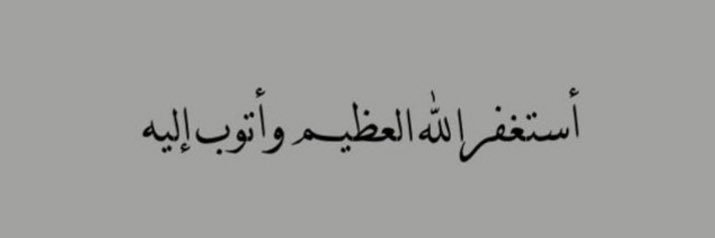 أستغفر الله العظيم وأتوب إليه